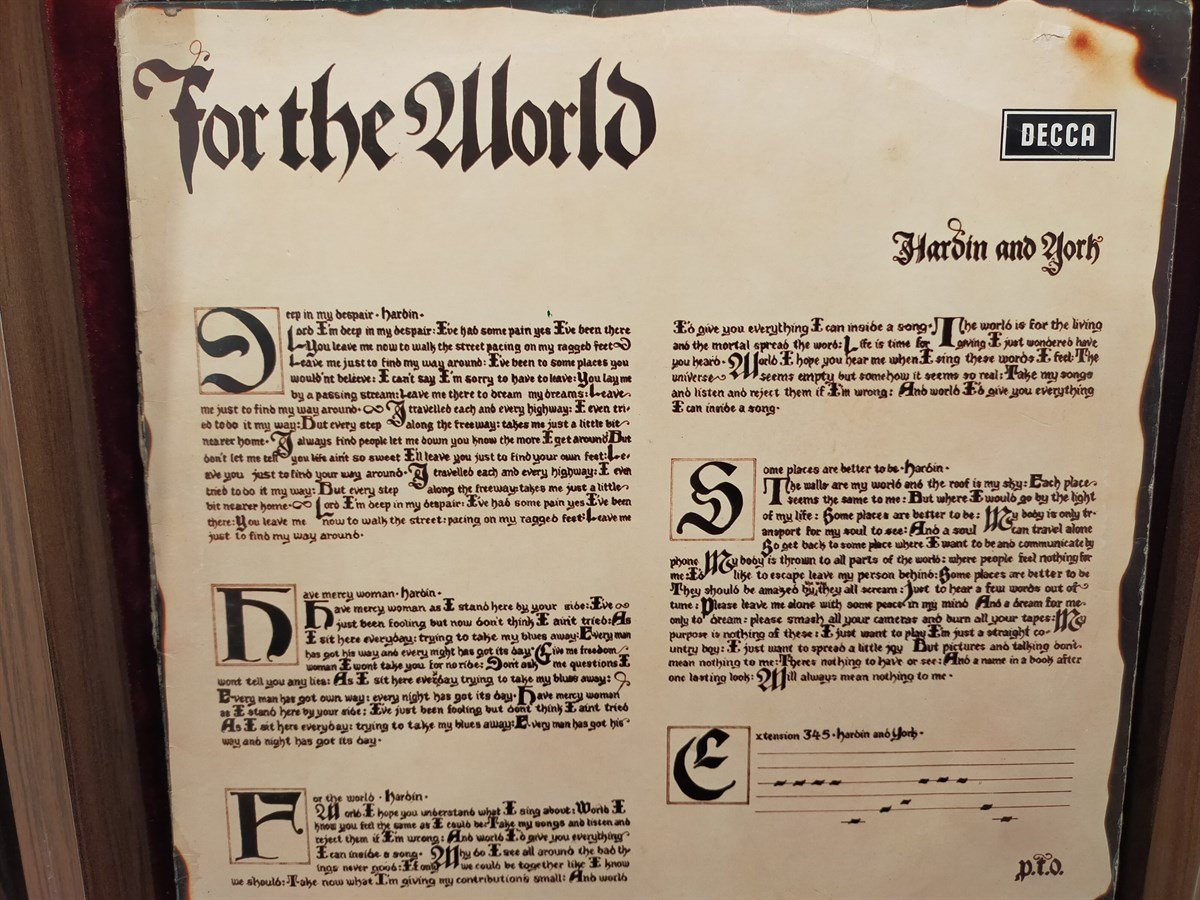 For the World
DECCA
Hardin and York
Deep in my despair · Hardin ·
Lord I'm deep in my despair: I've had some pain yes I've been there
You leave me now to walk the street pacing on my ragged feet
Leave me just to find my way around: I've been to some places you
would'nt believe: I can't say I'm sorry to have to leave: You lay me
by a passing stream: Leave me there to dream my dreams: Leave
me just to find my way around · I travelled each and every highway: I even tri-
ed to do it my way: But every step along the freeway: takes me just a little bit
nearer home · I always find people let me down you know the more I get around: But
don't let me tell you life ain't so sweet I'll leave you just to find your own feet: Le-
ave you just to find your way around · I travelled each and every highway: I even
tried to do it my way: But every step along the freeway: takes me just a little
bit nearer home · Lord I'm deep in my despair: I've had some pain yes I've been
there: You leave me now to walk the street: pacing on my ragged feet: Leave me
just to find my way around ·
Have mercy woman · Hardin ·
Have mercy woman as I stand here by your side: I've
just been fooling but now don't think I ain't tried: As
I sit here everyday: trying to take my blues away: Every man
has got his way and every night has got its day · Give me freedom
woman I wont take you for no ride: Don't ask me questions I
wont tell you any lies: As I sit here everyday trying to take my blues away:
Every man has got own way: every night has got its day · Have mercy woman
as I stand here by your side: I've just been fooling but dont think I aint tried
As I sit here everyday: trying to take my blues away: Every man has got his
way and night has got its day ·
For the world · Hardin ·
World I hope you understand what I sing about: World I
know you feel the same as I could be: Take my songs and listen and
reject them if I'm wrong: And world I'd give you everything
I can inside a song · Why do I see all around the bad th-
ings never good: If only we could be together like I know
we should: Take now what I'm giving my contribution's small: And world
I'd give you everything I can inside a song · The world is for the living
and the mortal spread the word: Life is time for giving I just wondered have
you heard · World I hope you hear me when I sing these words I feel: The
universe seems empty but somehow it seems so real: Take my songs
and listen and reject them if I'm wrong: And world I'd give you everything
I can inside a song ·
Some places are better to be · Hardin ·
The walls are my world and the roof is my sky: Each place
seems the same to me: But where I would go by the light
of my life: Some places are better to be: My body is only tr-
ansport for my soul to see: And a soul can travel alone
So get back to some place where I want to be and communicate by
phone My body is thrown to all parts of the world: where people feel nothing for
me: I'd like to escape leave my person behind: Some places are better to be
They should be amazed by the way they all scream: Just to hear a few words out of
tune: Please leave me alone with some peace in my mind And a dream for me
only to dream: please smash all your cameras and burn all your tapes: My
purpose is nothing of these: I just want to play I'm just a straight co-
untry boy: I just want to spread a little joy But pictures and talking dont
mean nothing to me: Theres nothing to have or see: And a name in a book after
one lasting look: Will always mean nothing to me ·
Extension 345 · Hardin and York ·
p.t.o.